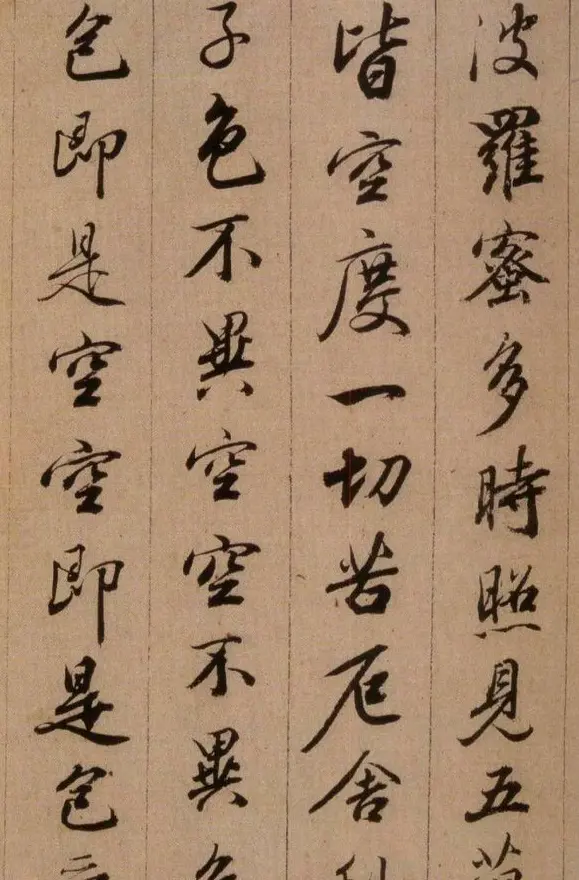 波羅蜜多時照見五蘊
皆空度一切苦厄舍利
子色不異空空不異色
色即是空空即是色